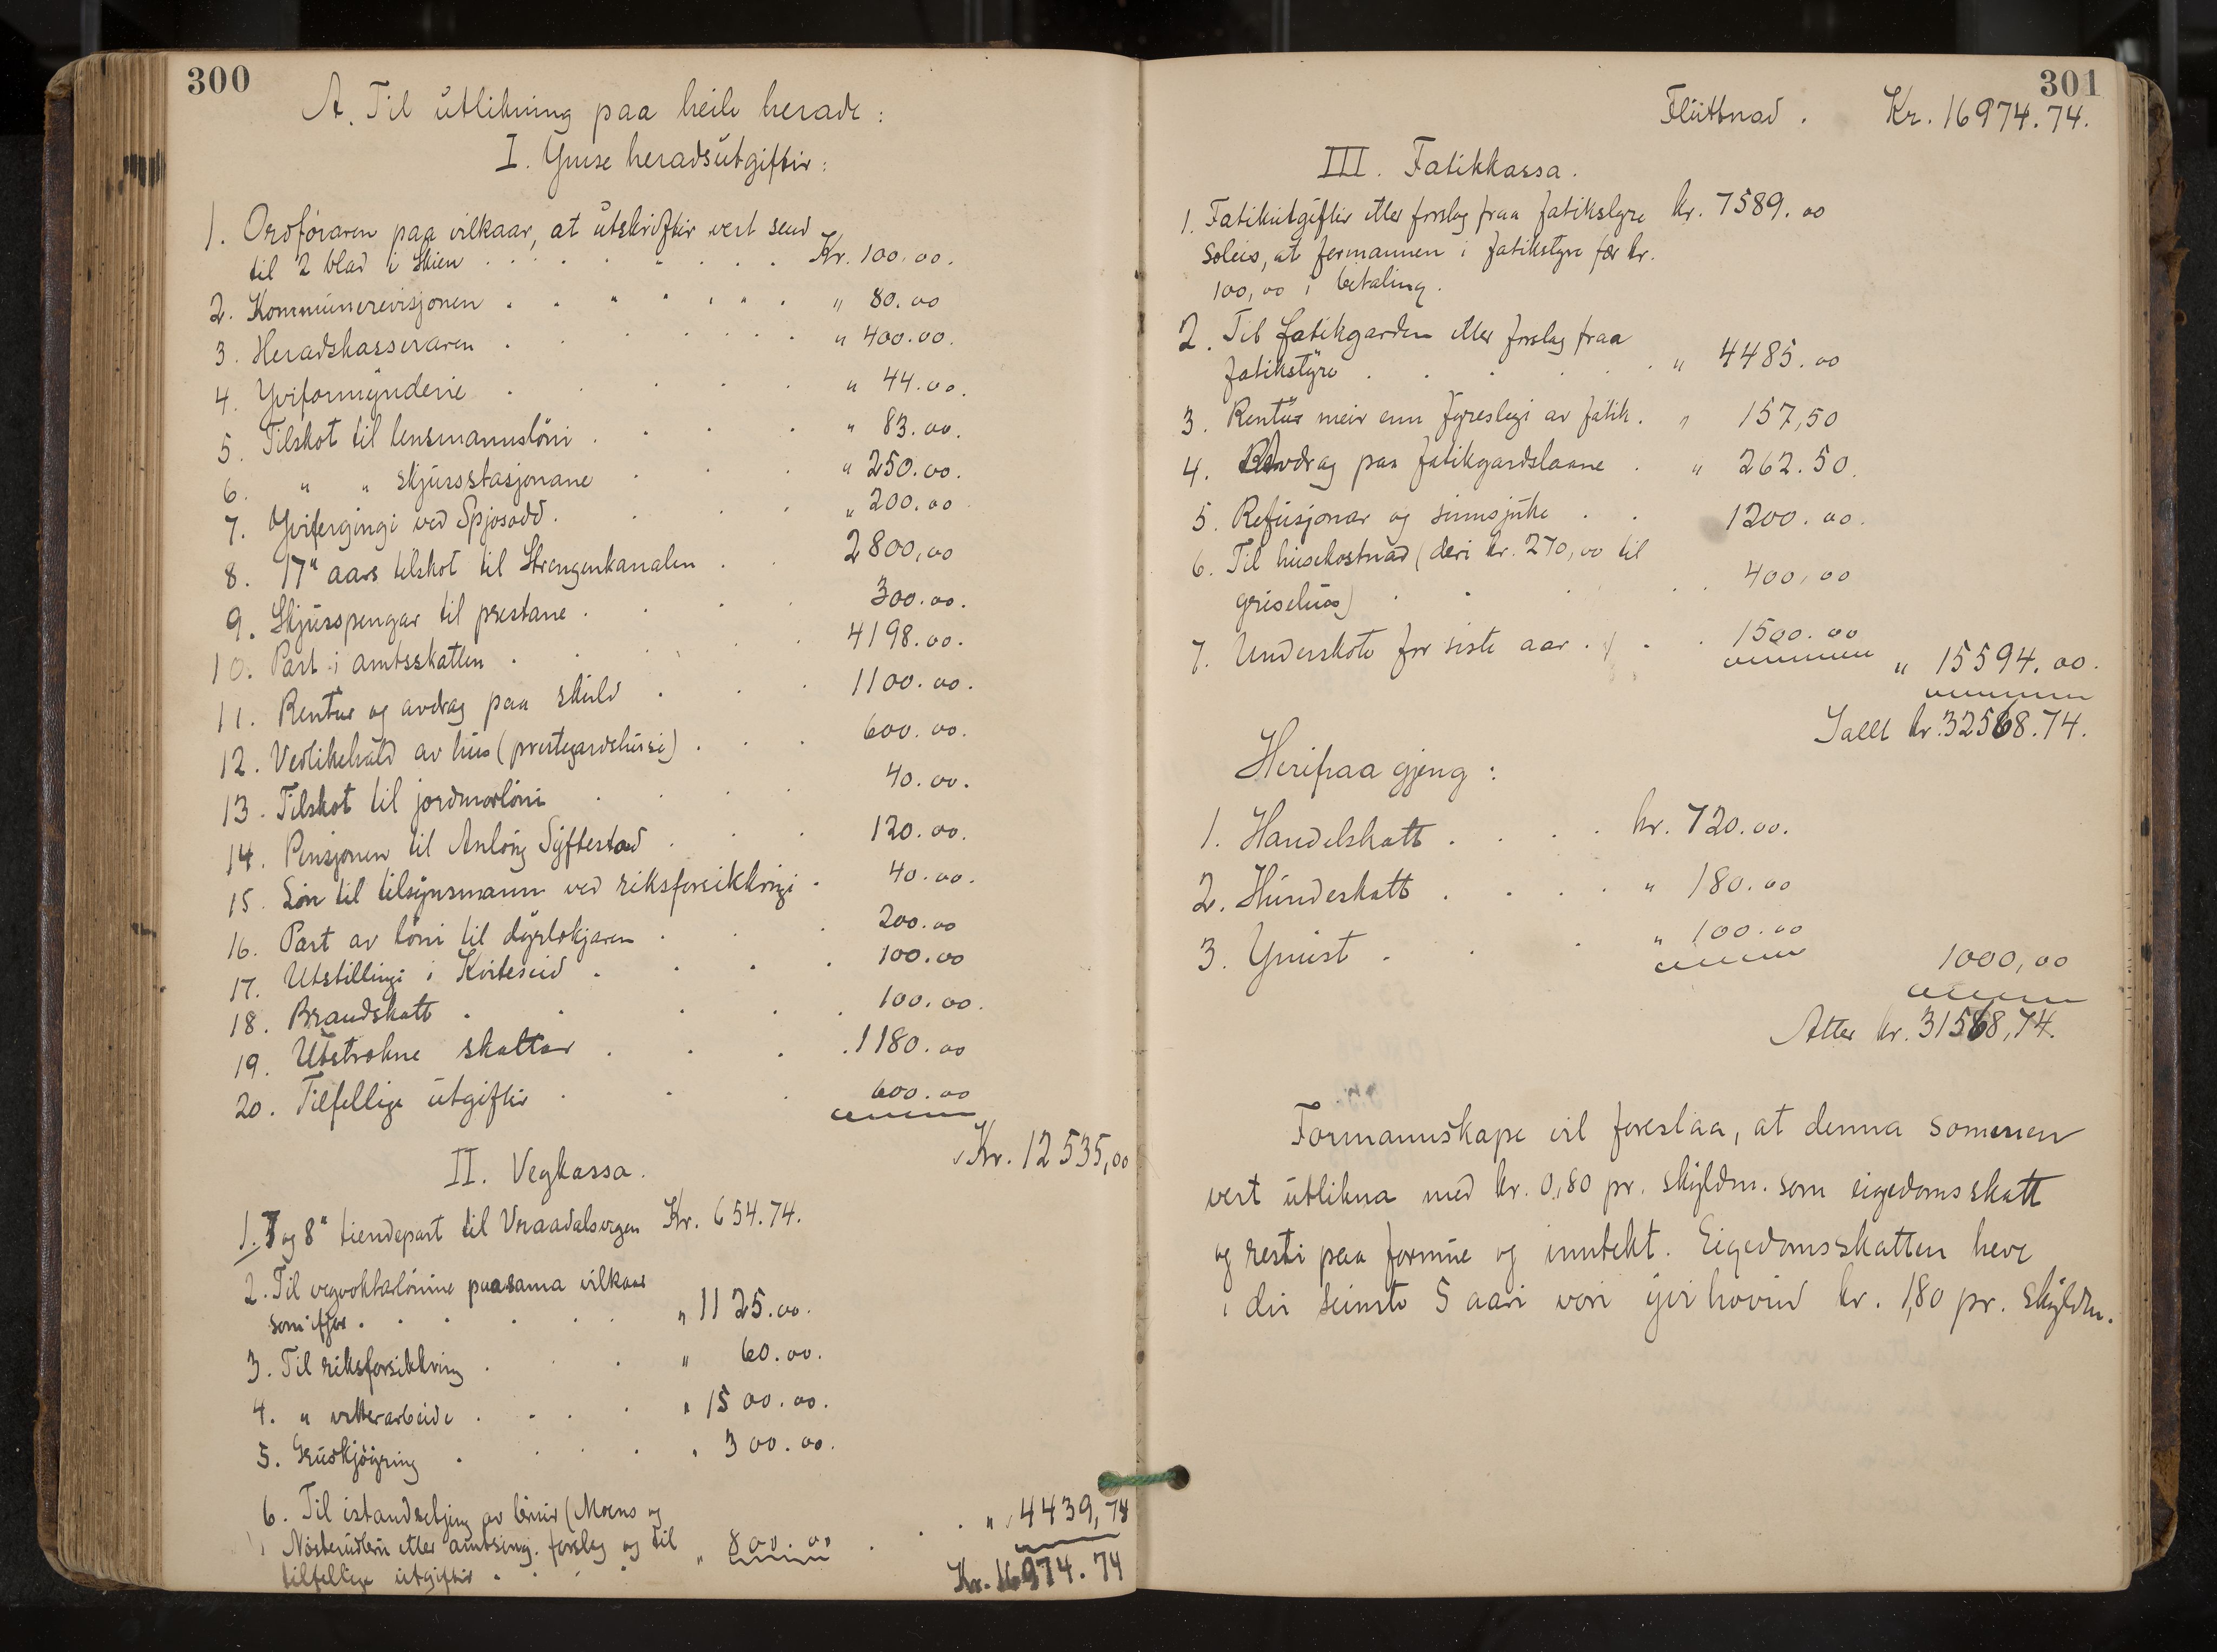 300
A. Til utlikning paa heile herade:
I. Ymse heradsutgiftir:
1. Ordføraren paa vilkaar, at utskriftir vert send
til 2 blad i Skien . . . . . . . . Kr. 100.00.
2. Kommunerevisjonen . . . . . . . " 80.00
3. Heradskasseraren . . . . . . " 400.00.
4. Yviformynderie . . . . . " 44.00.
5. Tilskot til lensmannsløni . . . . " 83.00.
6. " " skjusstasjonane . . . " 250.00.
7. Yvifergingi ved Spjosodd . . . . " 200.00
8. 17" aars tilskot til Strengenkanalen . . 2800,00
9. Skjusspengar til prestane . . . . 300.00.
10. Part i amtsskatten . . . . 4198.00.
11. Rentur og avdrag paa skuld . . . 1100.00.
12. Vedlikehald av hus (prestegardshusi) . . . 600.00.
13. Tilskot til jordmorløni . . . . 40.00.
14. Pensjonen til Anlaug Syftestad . . . 120.00.
15. Løn til tilsynsmann ved riksforsikkringi . 40.00.
16. Part av løni til dyrlækjaren . . . 200.00
17. Utstillingi i Kviteseid . . . . 100.00
18. Brandskatt . . . . . 100.00.
19. Utstrokne skattar . . . . 1180.00
20. Tilfellige utgiftir . . . 600.00
Kr. 12535,00
II. Vegkassa.
1. 7 og 8" tiendepart til Vraadalsvegen Kr. 654.74.
2. Til vegvoktarlønine paa sama vilkaar
som ifjor . . . . . . " 1125.00.
3. Til riksforsikkring . . . " 60.00.
4. " vetterarbeide . . . . " 1500.00.
5. Gruskjøyring . . . . " 300.00.
6. Til istandsetjing av bruir (Moens og
etter amtsing. forslag og til " 800.00 . . . " 4439,74
tilfellige utgiftir . . . . Kr. 16974.74
301
Flutnad . Kr. 16974.74.
III. Fatikkassa.
1. Fatikutgiftir etter forslag fraa fatikstyre kr. 7589.00
soleis, at formannen i fatikstyre fær kr.
100,00 i betaling.
2. Til fatikgarden etter forslag fraa
fatikstyre . . . . . . " 4485.00
3. Rentur meir enn fyreslegi av fatik. " 157,50
4. Avdrag paa fatikgardslaane . " 262.50.
5. Refusjonar og sinnsjuke . . 1200.00.
6. Til husekostnad (deri kr. 270,00 til
grisehus) . . . . . 400,00
7. Underskot for siste aar . . . 1500.00
" 15594.00.
Iallt kr. 32568.74.
Herifraa gjeng:
1. Handelskatt . . . . kr. 720.00.
2. Hundeskatt . . . . " 180.00
3. Ymist . . . " 100.00
1000,00
Atter kr. 31568,74.
Formannskape vil foreslaa, at denna summen
vert utlikna med kr. 0,80 pr. skyldm. som eigedomsskatt
og resti paa formue og inntekt. Eigedomsskatten heve
i dei seinste 5 aari vori yvi hovud kr. 1,80 pr. skyldm.